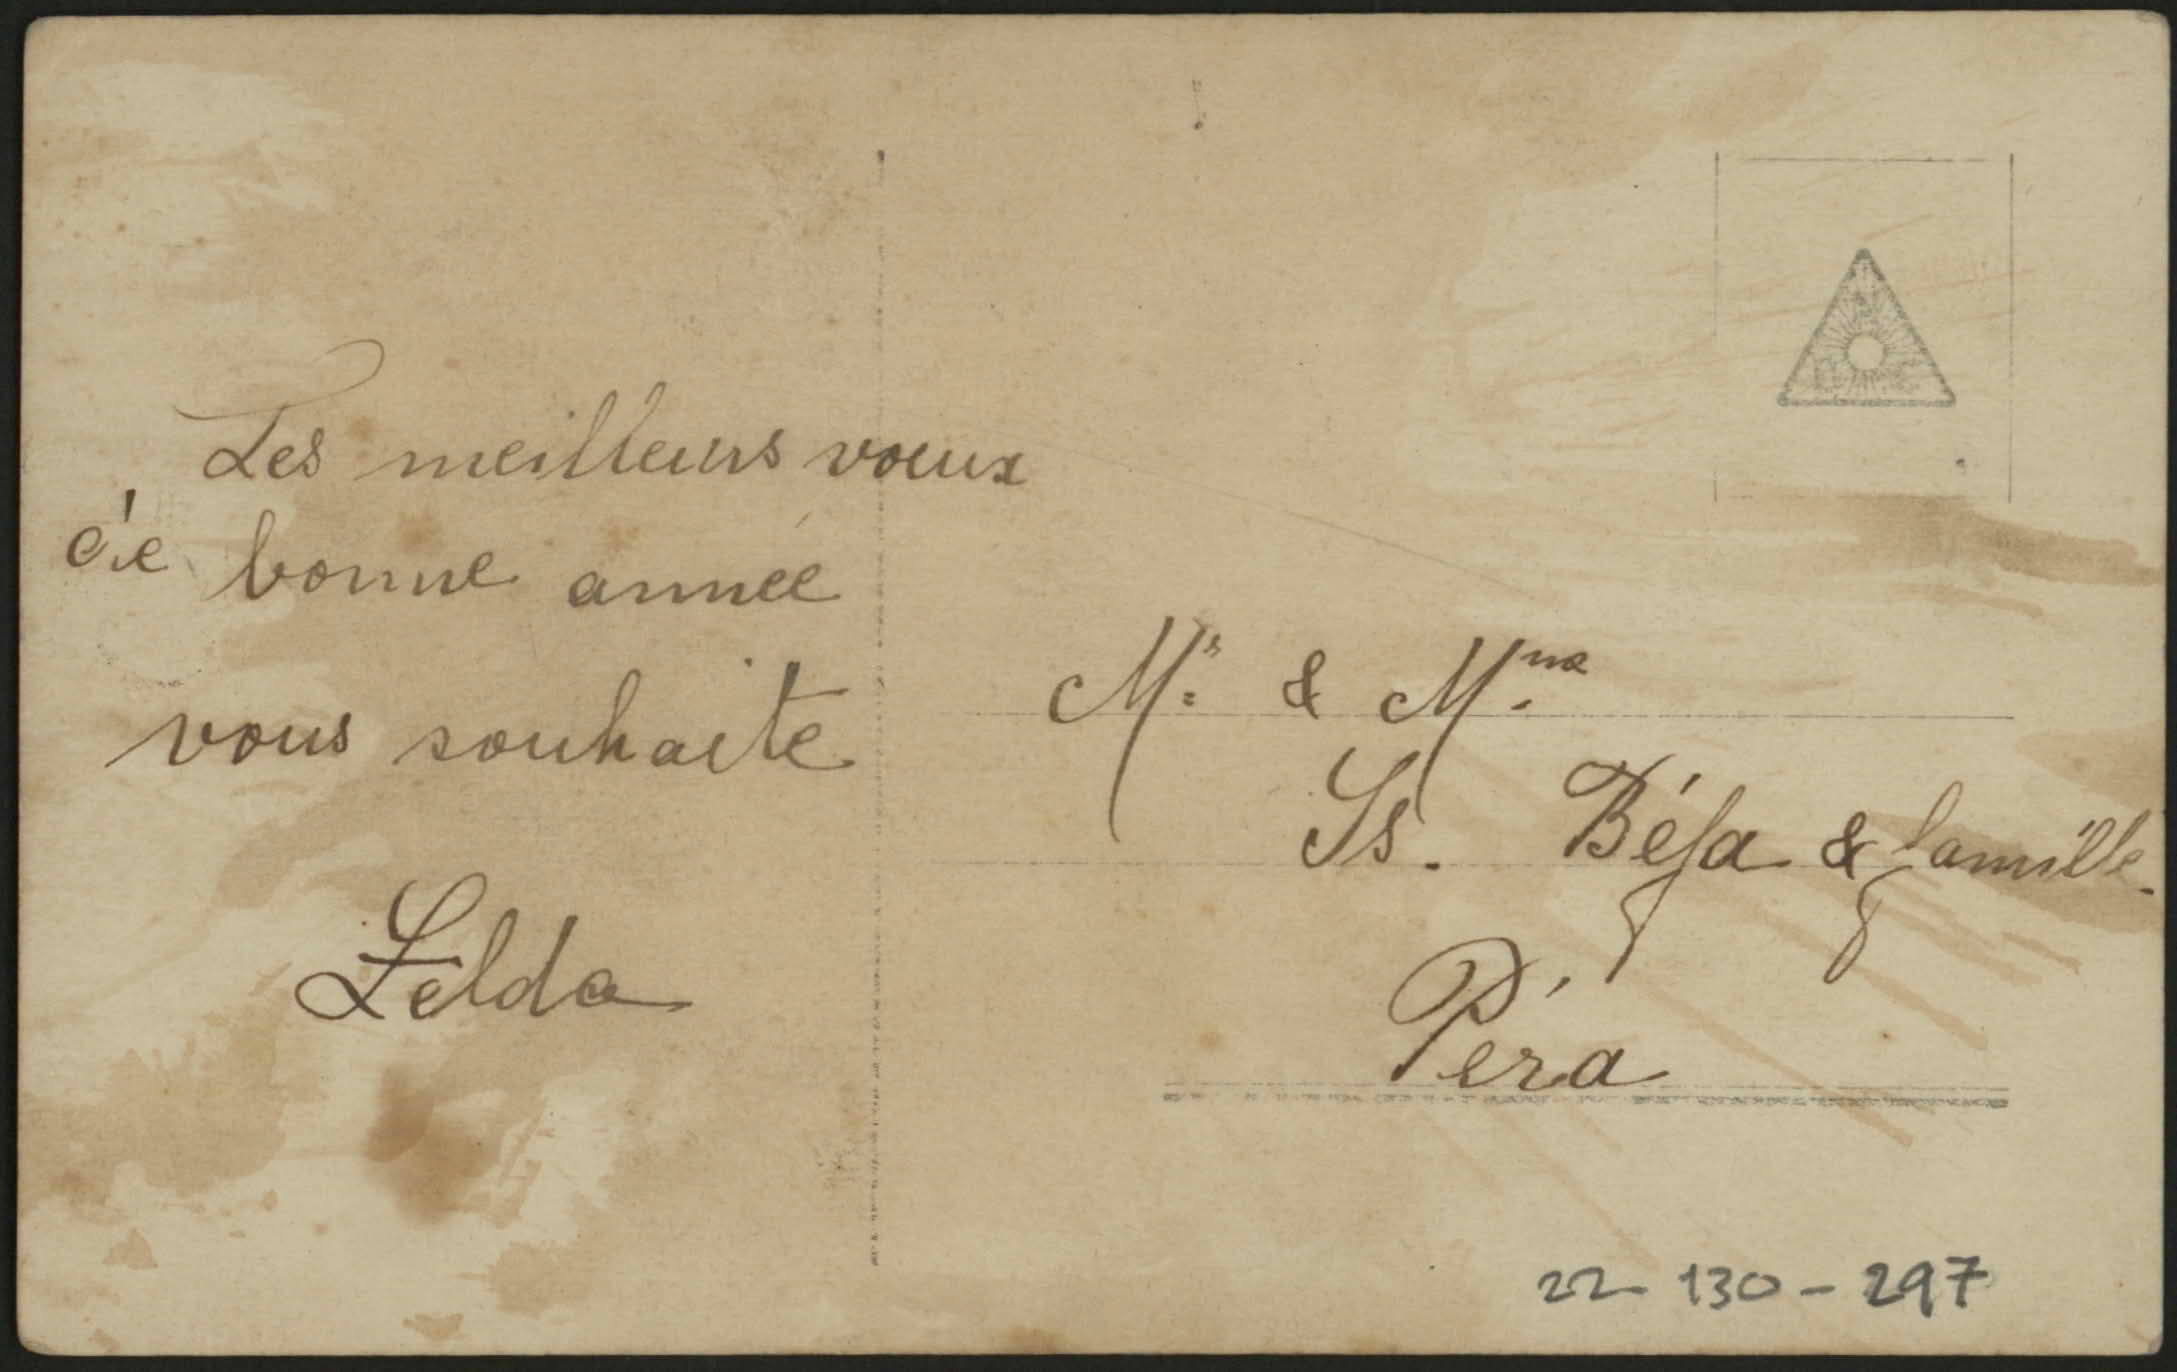 Les meilleurs vœux
de bonne année
vous souhaite
Zelda
Mr. & Mme.
Is. Béja & famille.
Péra
22-130-297